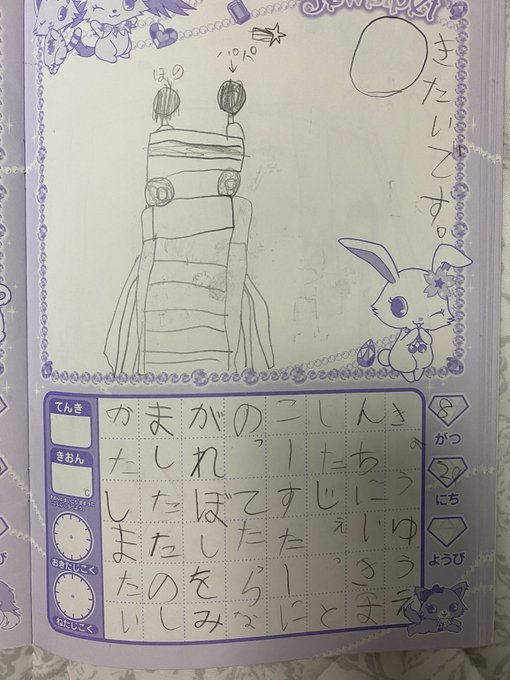 Jewelpet
ほの
パパ
きのうゆうえ
んちにいきま
したじぇっと
こーすたーに
のってたらな
がれぼしをみ
ました たのし
かたしまたい
きたいです。
8 がつ
20 にち
ようび
てんき
きおん
℃
おきたじこく
ねたじこく